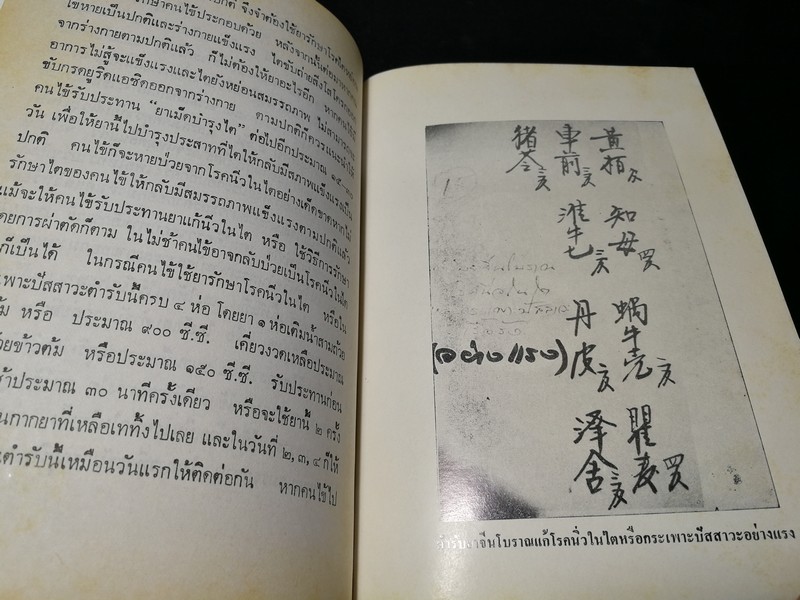 รักษาคนไข้ประกอบด้วย หลังจากนั้น
ไข้หายเป็นปกติและร่างกายแข็งแรง ไตขับถ่าย
จากร่างกายตามปกติแล้ว ก็ไม่ต้องให้ยาอะไรอีก หาก
อาการไม่สู้จะแข็งแรงและไตยังหย่อนสมรรถภาพ ไม่สามารถ
ขับกรดยูริคแอซิดออกจากร่างกาย ตามปกติก็ควรแนะนำให้
คนไข้รับประทาน "ยาเม็ดบำรุงไต" ต่อไปอีกประมาณ ๑๕
วัน เพื่อให้ยานี้ไปบำรุงประสาทที่ไตให้กลับมีสภาพแข็งแรงเป็น
ปกติ คนไข้ก็จะหายป่วยจากโรคนิ่วในไตอย่างเด็ดขาดหากไม่
รักษาไตของคนไข้ให้กลับมีสมรรถภาพแข็งแรงตามปกติแล้ว
แม้จะให้คนไข้รับประทานยาแก้นิ่วในไต หรือ ใช้วิธีการรักษา
โดยการผ่าตัดก็ตาม ในไม่ช้าคนไข้อาจกลับป่วยเป็นโรคนิ่วในไต
ก็เป็นได้ ในกรณีคนไข้ใช้ยารักษาโรคนิ่วในไต หรือใน
เพาะปัสสาวะตำรับนี้ครบ ๔ ห่อ โดยยา ๑ ห่อเติมน้ำสามถ้วย
ต้ม หรือ ประมาณ ๙๐๐ ซี.ซี. เคี่ยวงวดเหลือประมาณ
วยข้าวต้ม หรือประมาณ ๑๕๐ ซี.ซี. รับประทานก่อน
ช้าประมาณ ๓๐ นาทีครั้งเดียว หรือจะใช้ยานี้ ๒ ครั้ง
นกากยาที่เหลือเททิ้งไปเลย และในวันที่ ๒, ๓, ๔ ก็ให้
ตำรับนี้เหมือนวันแรกให้ติดต่อกัน หากคนไข้ไป
黃柏
知母
蝸牛壳
瞿麦
車前
淮牛七
丹皮
泽舍
豬苓
(อย่างแรง)
ตำรับยาจีนโบราณแก้โรคนิ่วในไตหรือกระเพาะปัสสาวะอย่างแรง